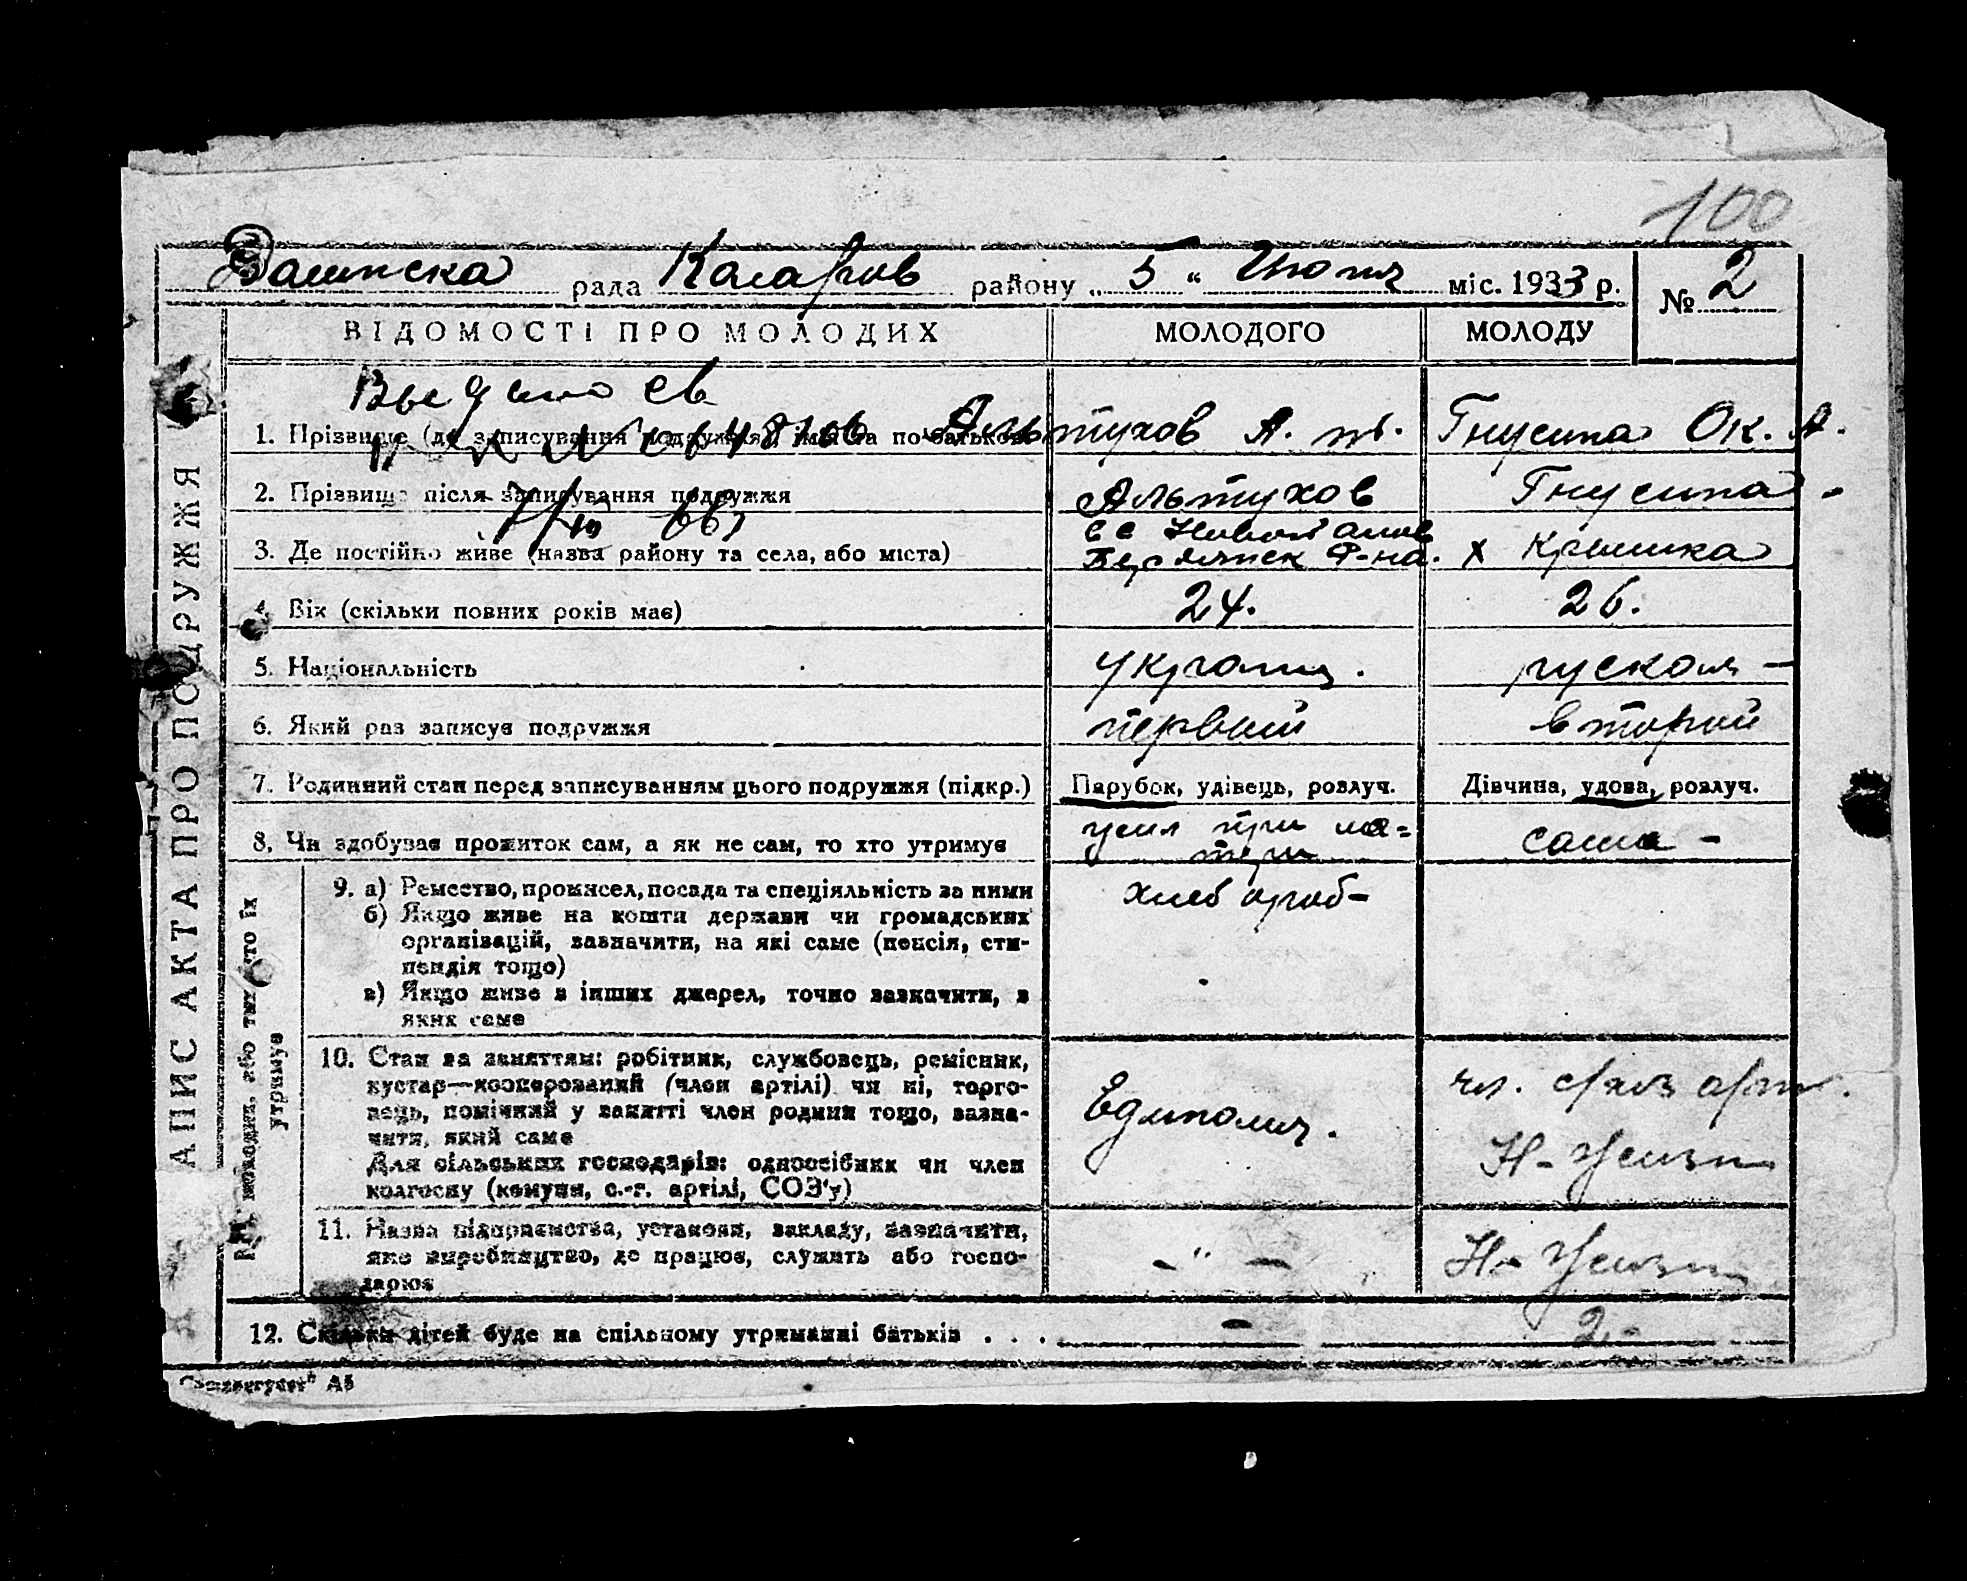 100
рада Коларов району „ 5 “ Июня міс. 1933 р. № 2
ВІДОМОСТІ ПРО МОЛОДИХ МОЛОДОГО МОЛОДУ
АПИС АКТА ПРО ПОДРУЖЖЯ
1. Прізвище (до записування подружжя), імя та по батькові Альтухов А. Гнусина Ок. А.
2. Прізвище після записування подружжя Альтухов Гнусина
3. Де постійно живе (назва району та села, або міста) Р-на. х Крынка
4. Вік (скільки повних років має) 24. 26.
5. Національність украинц. руская
6. Який раз записує подружжя первый второй
7. Родинний стан перед записуванням цього подружжя (підкр.) Парубок, удівець, розлуч. Дівчина, удова, розлуч.
8. Чи здобував прожиток сам, а як не сам, то хто утримує жил при ма=
тери сама -
утримує
9. а) Ремество, промисел, посада та спеціяльність за ними хлебороб-
б) Якщо живе на кошти держави чи громадських
організацій, зазначити, на які саме (пенсія, сти-
пендія тощо)
в) Якщо живе з інших джерел, точно зазначити, з
яких саме
10. Стан за заняттям: робітник, службовець, ремісник,
кустар—кооперований (член артілі) чи ні, торго-
вець, помічний у занятті член родини тощо, зазна-
чити, який саме
Для сільських господарів: одноосібник чи член
колгоспу (комуни, с.-г. артілі, СОЗ'у)
Единолич. чл. арт.
Н-Жизнь
11. Назва підприємства, установи, закладу, зазначити,
яке виробництво, де працює, служить або госпо-
дарює
- " - Н-Жизнь
12. Скільки дітей буде на спільному утриманні батьків . . . - 2-